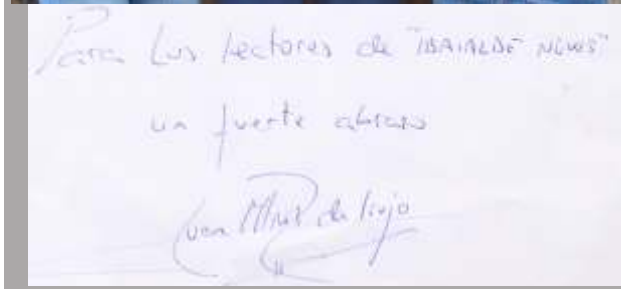 Para los lectores de "IBAIALDE NEWS"
un fuerte abrazo
Juan Mnez de Irujo